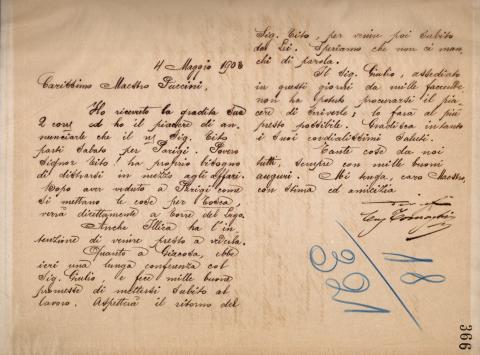 4 Maggio 1903
Carissimo Maestro Puccini,
Ho ricevuto la gradita Sua
2 corr. ed ho il piacere di an-
nunciarle che il n/ Sig. Tito
partì Sabato per Parigi. Povero
Signor Tito! ha proprio bisogno
di distrarsi in mezzo agli affari.
Dopo aver veduto a Parigi come
si mettano le cose per Tosca,
verrà direttamente a Torre del Lago.
Anche Illica ha l'in-
tenzione di venire presto a vederla.
Quanto a Giacosa, ebbe
ieri una lunga conferenza col
Sig. Giulio e fece mille buone
promesse di mettersi subito al
lavoro. Aspetterà il ritorno del
Sig. Tito, per venire poi subito
da Lei. Speriamo che non ci man-
chi di parola.
Il Sig. Giulio, assediato
in questi giorni da mille faccende,
non ha potuto procurarsi il pia-
cere di scriverle; lo farà al più
presto possibile. Gradisca intanto
i suoi cordialissimi saluti.
Tante cose da noi
tutti, sempre con mille buoni
auguri. Mi tenga, caro Maestro,
con stima ed amicizia
18
392
366